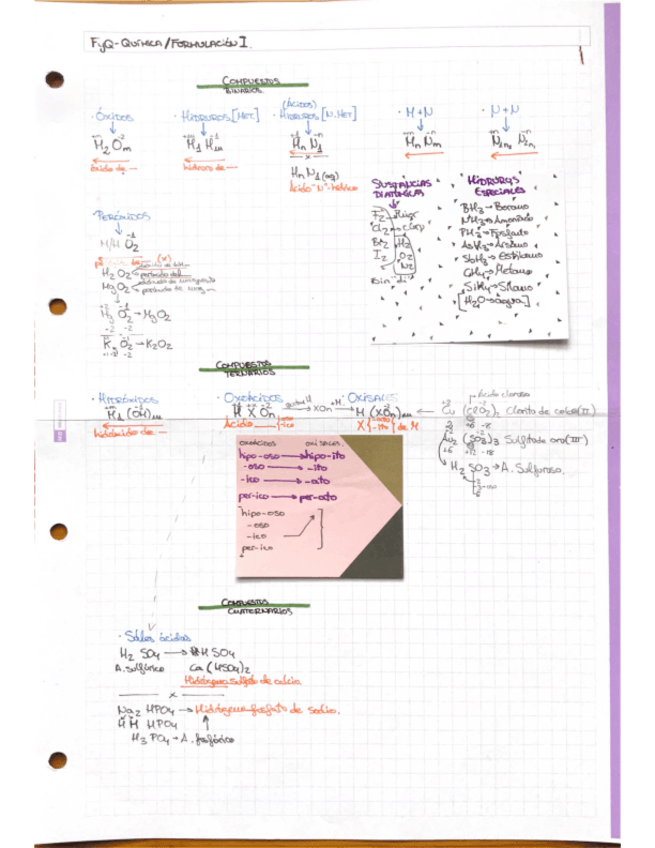 FyQ-QUÍMICA/FORMULACIÓN I
COMPUESTOS
BINARIOS
· ÓXIDOS
M₂Oₘ
óxido de —
· HIDRUROS [MET.]
M₁Hₘ
hidruro de —
(ÁCIDOS)
· HIDRUROS [N.MET]
HₙN₁
x
HₙN₁(aq)
Ácido "N"-hídrico
· M+N
MₙNₘ
· N+N
SUSTANCIAS
DIATÓMICAS
F₂
Cl₂
Br₂ H₂
I₂ O₂
N₂
HIDRUROS
ESPECIALES
BH₃→Borano
NH₃→Amoniaco
PH₃→Fosfano
AsH₃→Arsano
SbH₃→Estibano
CH₄→Metano
SiH₄→Silano
[H₂O→agua]
· PERÓXIDOS
M/H O₂
H₂O₂
→ MgO₂
K₂ O₂→K₂O₂
COMPUESTOS
TERNARIOS
· HIDRÓXIDOS
M₁(OH)ₘ
hidróxido de —
· OXOÁCIDOS
H X Oₙ
Ácido ___ {-oso -ico
quitar H
XOn
+M
· OXISALES
M (XOₙ)ₘ
X {-ito} de M
ácido cloroso
Cu (ClO₂)₂ Clorito de cobre(II)
Au₂ (SO₃)₃ Sulfito de oro(III)
H₂ SO₃→A. Sulfuroso.
oxoácidos oxisales
hipo-oso→hipo-ito
-oso→-ito
-ico→-ato
per-ico→per-ato
hipo-oso
-oso
-ico
per-ico
COMPUESTOS
CUATERNARIOS
· Sales ácidas
H₂ SO₄ → HSO₄
A. sulfúrico Ca(HSO₄)₂
Hidrógenosulfato de calcio
x
Na₂ HPO₄ → Hidrógenofosfato de sodio.
H H HPO₄
H₃ PO₄→A. fosfórico